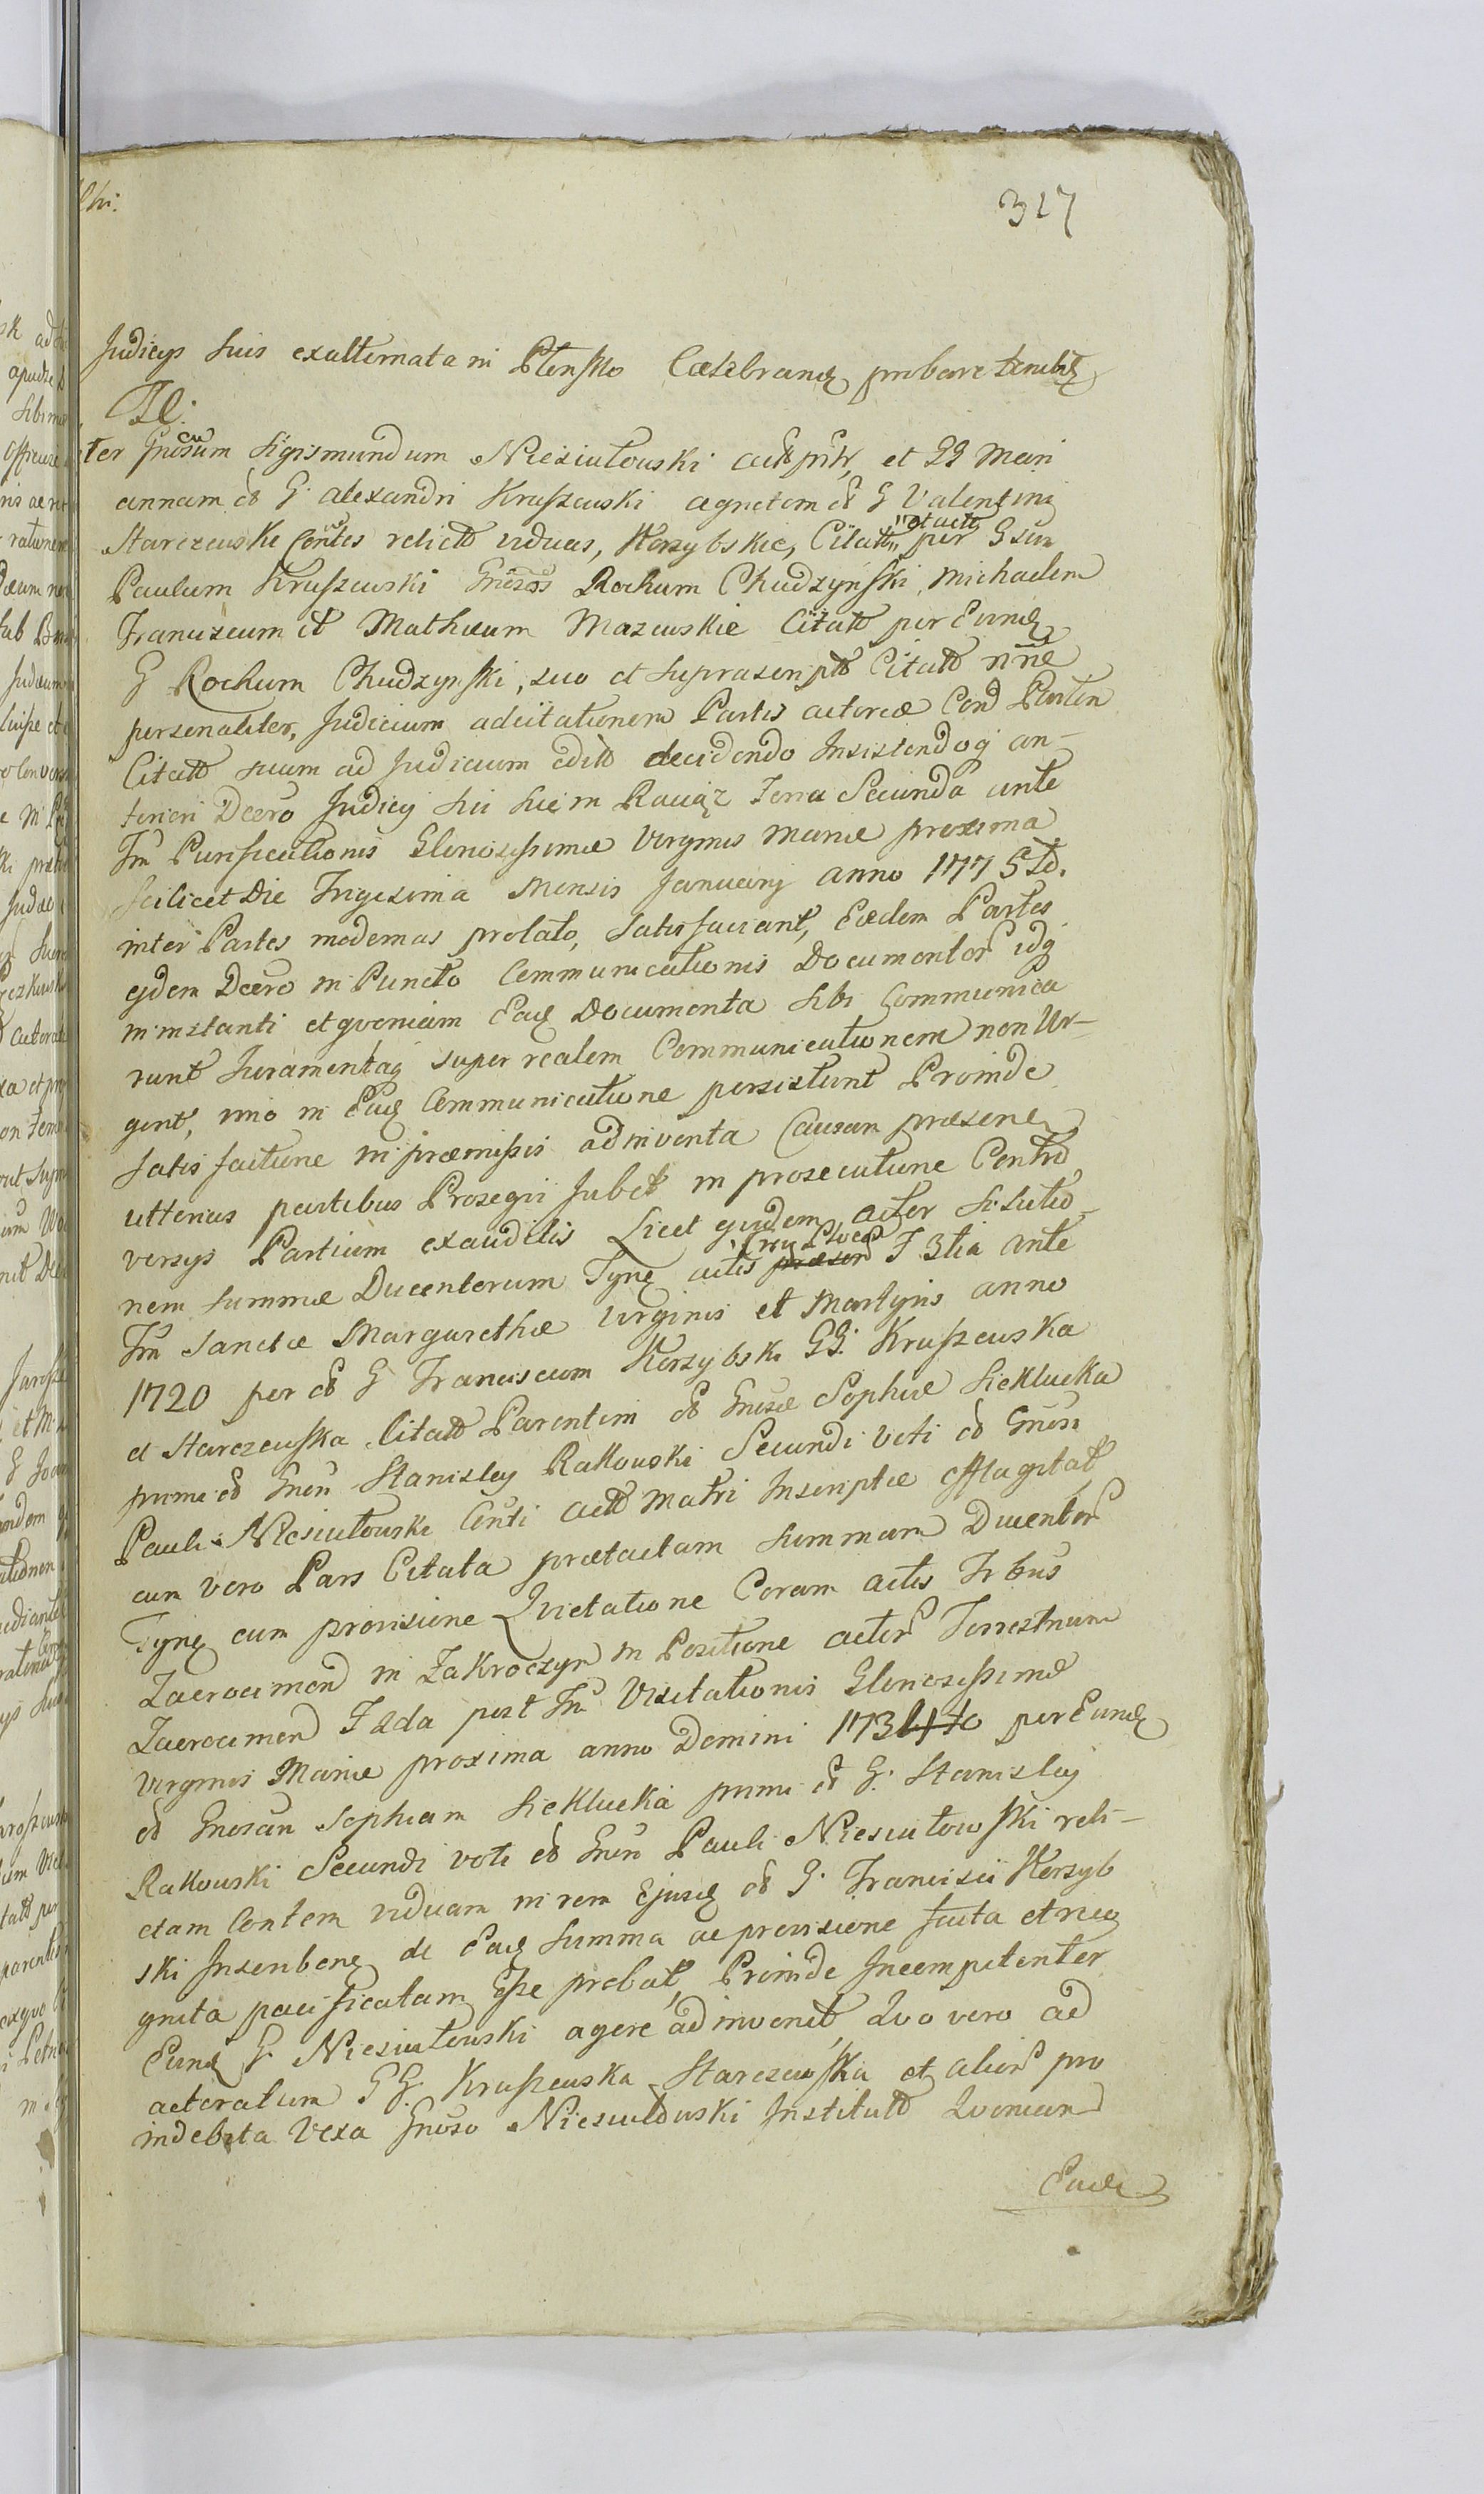 317
Judicys suis exalternata in Plonsko Caelebrand probare tenebit
ter Gnosum Sigismundum Niesiułowski act prtr, et GG Mari
annam olim G. Alexandri Kruszewski agnetem olim G Valentini
Starczewski Contes relict viduas, Korzybskie, Citat et act per Gsum
Paulum Kruszewski Gnosos Rochum Chudzyński, Michaelem
Franciscum et Mathæum Mazewskie Citat per Eund
G Rochum Chudzynski, suo et suprascript Citat nne
personaliter, Judicium ad citationem Partis actoreæ Cond
Citat suum ad Judicium edit decidendo Insistendoq an-
teriori Dcero Judicy sui hic in Raciąz Terra Secunda ante
Fm Purificationis Gloriosissimæ Virginis Mariæ proxima
scilicet Die Trigesima Mensis January anno 1775to.
inter Partes modernas prolato, satisfaciant, Eædem Partes
ejdem Dcero in Puncto Communicationis Documentor idq
in instanti et qvoniam Ead Documenta sibi Communica
runt Juramentaq super realem Communicationem non Ur-
gent, imo in Ead Communicatione persistunt Proinde
satis factione in præmissis adinventa Causam præsene
ulterius partibus Proseqvi Jubet in prosecutione Contro
versys Partium exauditis Licet qvidem actor solutio
nem summæ Ducentorum Tynf actis præsen F 3tia ante
Fm Sanctæ Margarethæ Virginis et Martyris anno
1720 per olim G Franciscum Korzybski GG. Kruszewska
et Starczewska Citat Parentem olim Gnosæ Sophiæ Sieklucka
primi olim Gnen Stanislay Rakowski Secundi voti olim Gnosi
Pauli Niesiułowski Conti act Matri Inscriptæ efflagitat
cum vero Pars Citata prætactam summam Ducentor
Tynf cum provisione Qvietatione Coram actis Trbus
Zacrocimen in Zakroczyn in Positione actor Terrestrium
Zacrocimen F 2da post Fm Visitationis Gloriosissimæ
Virginis Mariæ proxima anno Domini 1734to per Eand
olim Gnosan Sophiam Sieklucka primi olim G. Stanislay
Rakowski Secundi voti olim Gnen Pauli Niesiułowski reli-
ctam Contem viduam in rem Ejusd olim G. Francisci Korzyb
ski Inscribent de Ead Summa ac provisione facta et recog
gnita pacificatam Esse probat, Proinde Incompetenter
Eund G. Niesiułowski agere adinvenit, Qvo vero ad
actoratum GG. Kruszewska Starczewska et alior pro
indebita Vexa Gnoso Niesiułowski Institut Qvoniam
Eaed